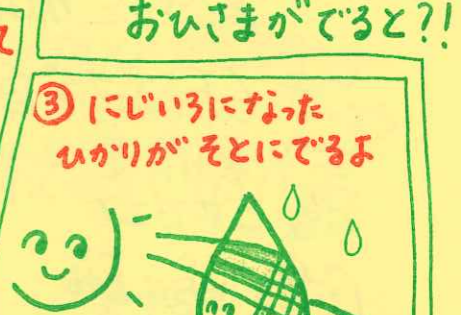 おひさまがでると?!
て
③にじいろになった
ひかりがそとにでるよ